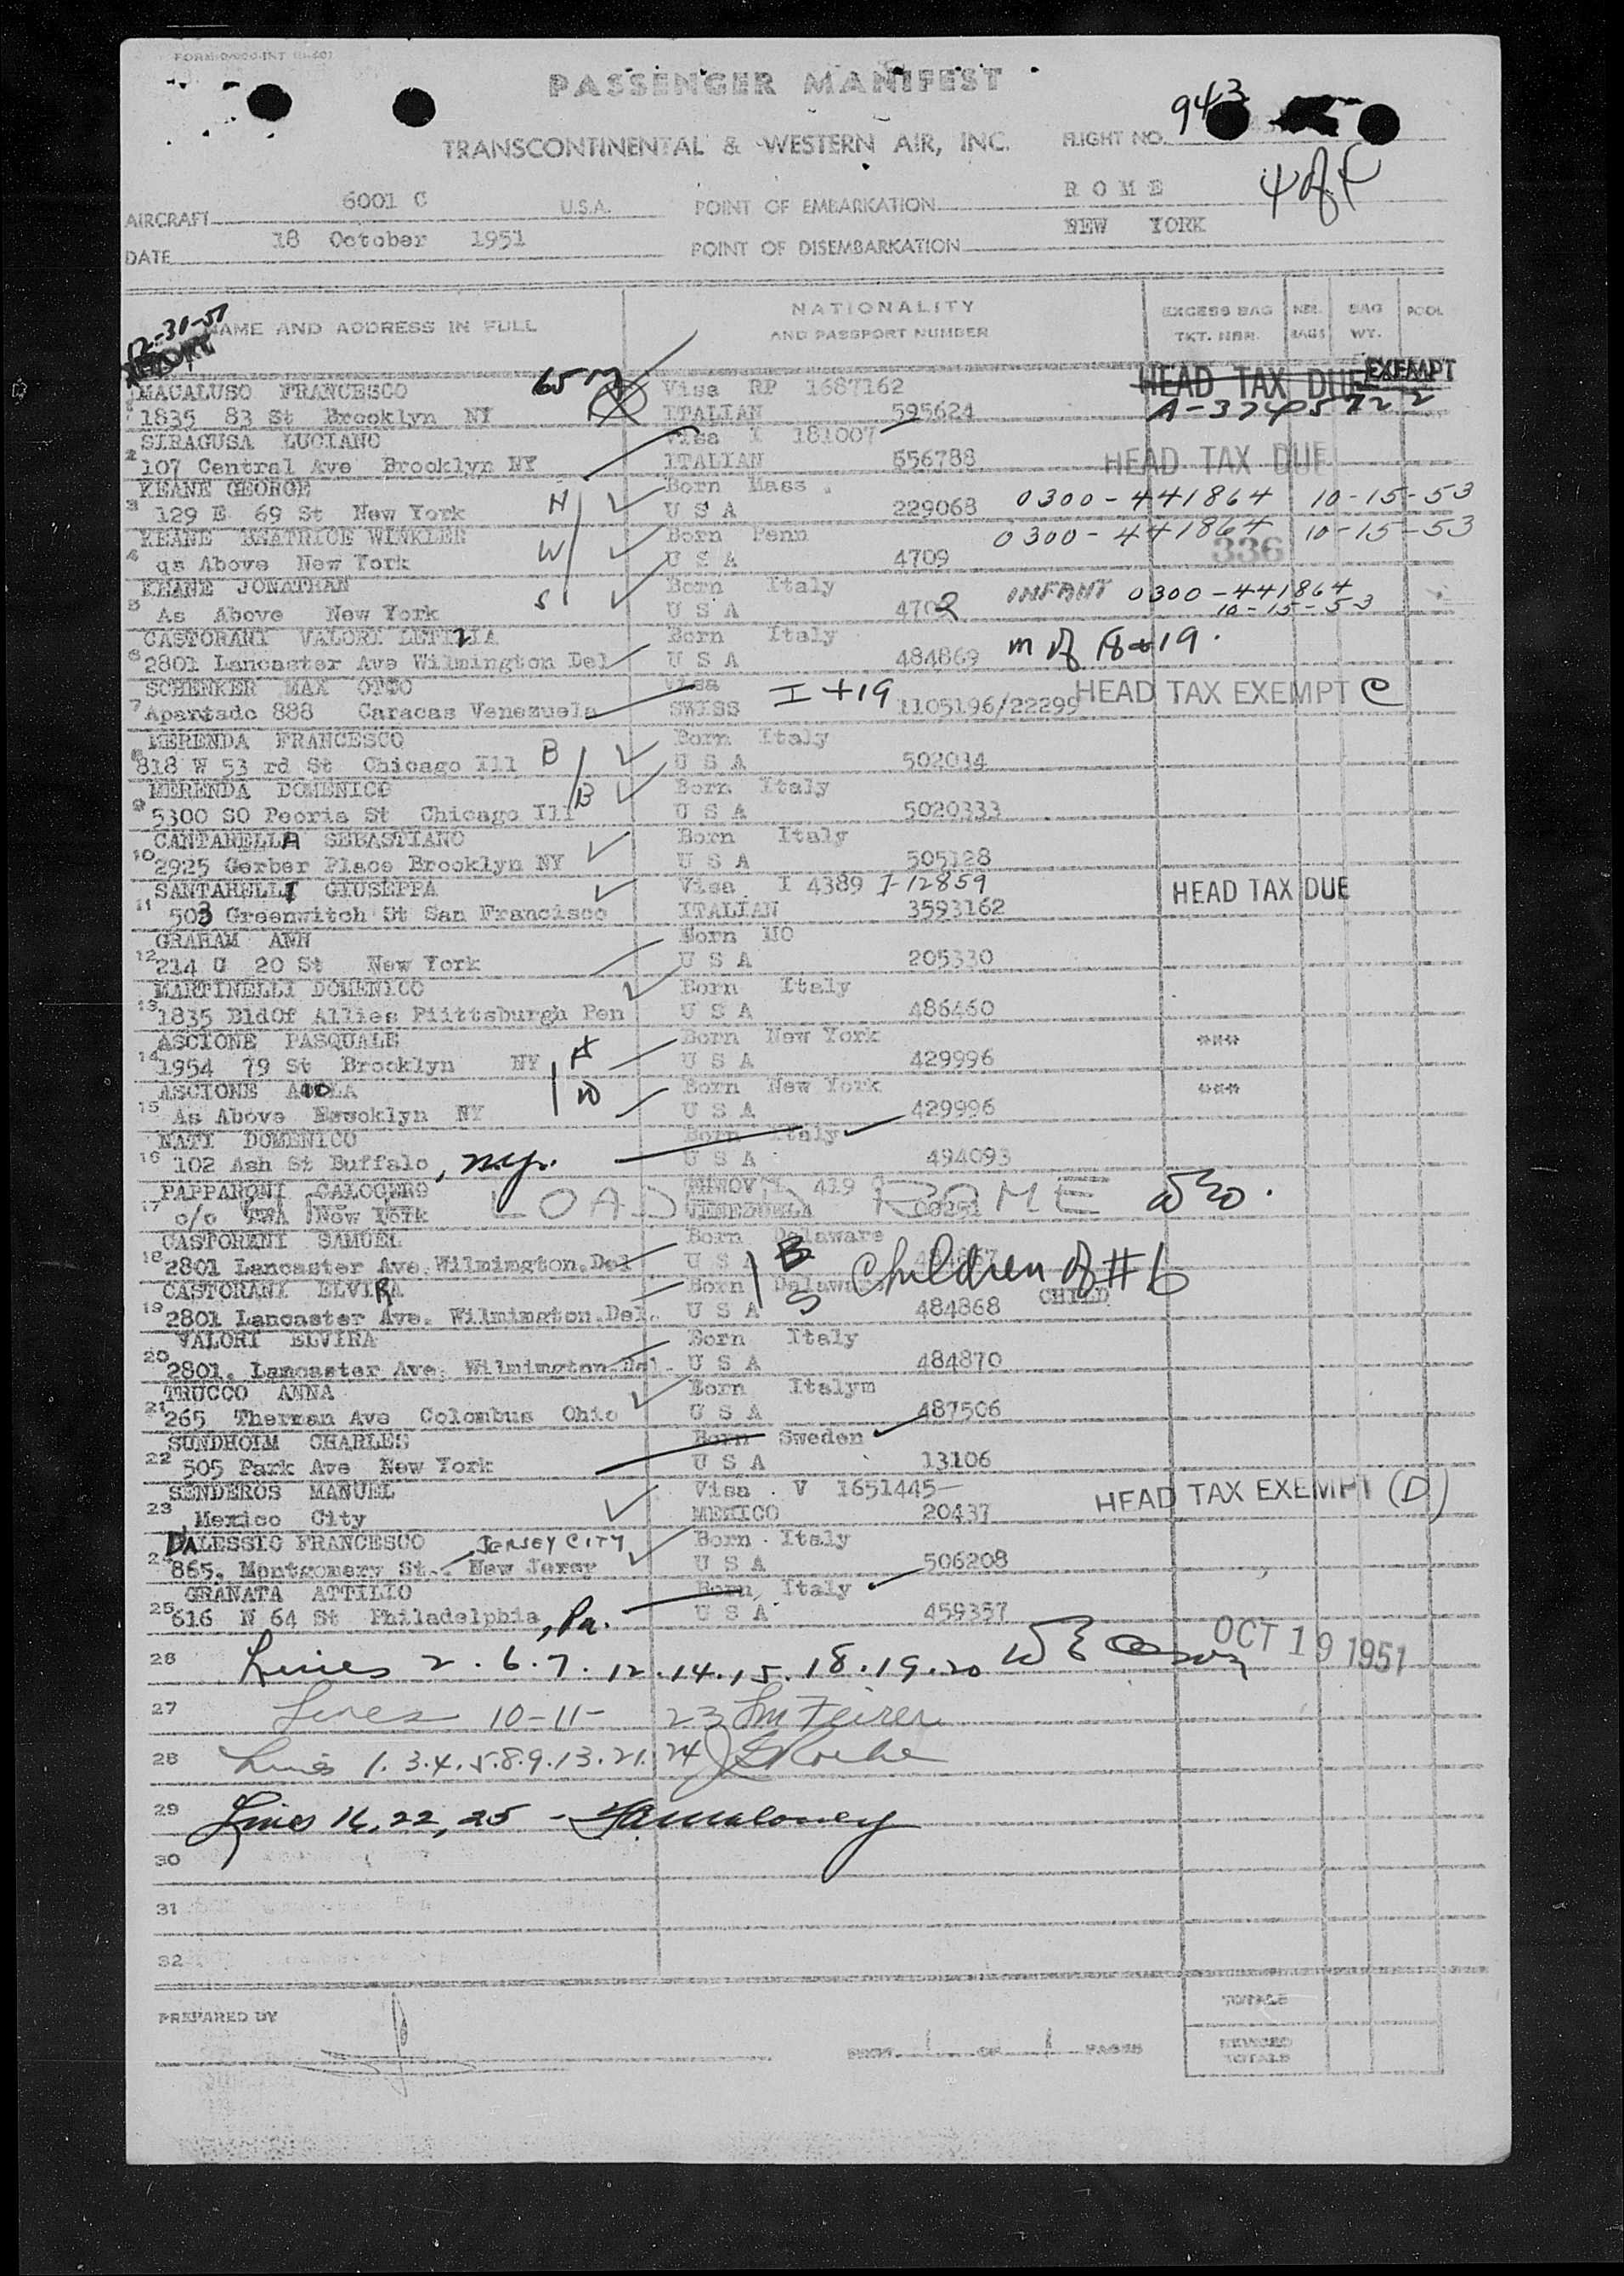 PASSENGER MANIFEST
TRANSCONTINENTAL & WESTERN AIR, INC. FLIGHT NO. 943
4 of 4
AIRCRAFT 6001 C U.S.A. POINT OF EMBARKATION ROME
DATE 18 October 1951 POINT OF DISEMBARKATION NEW YORK
NAME AND ADDRESS IN FULL NATIONALITY AND PASSPORT NUMBER EXCESS BAG TKT. NBR. NBR. BAGS BAG WT. POOL
12-31-51
MACALUSO FRANCESCO 65 m Visa RP 1687162 HEAD TAX DUE EXEMPT
1 1835 83 St Brooklyn NY ITALIAN 595624
SIRAGUSA LUCIANO Visa I 181007
2 107 Central Ave Brooklyn NY ITALIAN 656788 HEAD TAX DUE
KEANE GEORGE Born Mass
3 129 E 69 St New York H U S A 229068 0300-441864 10-15-53
KEANE BEATRICE WINKLER Born Penn 0300-441864 10-15-53
4 qs Above New York W U S A 4709 336
KEANE JONATHAN Born Italy INFANT 0300-441864
5 As Above New York S U S A 4702 10-15-53
CASTORANI VALORI LETIZIA Born Italy
6 2801 Lancaster Ave Wilmington Del U S A 484869 m of 18+19.
SCHENKER MAX OTTO Visa I+19 HEAD TAX EXEMPT C
7 Apartado 888 Caracas Venezuela SWISS 1105196/22299
MERENDA FRANCESCO Born Italy
8 818 W 53 rd St Chicago Ill B U S A 502034
MERENDA DOMENICO Born Italy
9 5300 SO Peoria St Chicago Ill B U S A 5020333
CANTARELLA SEBASTIANO Born Italy
10 2925 Gerber Place Brooklyn NY U S A 505128
SANTARELLI GIUSEPPA Visa I 4389 I-12859 HEAD TAX DUE
11 503 Greenwitch St San Francisco ITALIAN 3593162
GRAHAM ANN Born MO
12 214 U 20 St New York U S A 205330
MARTINELLI DOMENICO Born Italy
13 1835 BldOf Allies Piittsburgh Pen U S A 486460
ASCIONE PASQUALE Born New York ***
14 1954 79 St Brooklyn NY H U S A 429996
ASCIONE Born New York ***
15 As Above Brooklyn NY W U S A 429996
NATI DOMENICO Born Italy
16 102 Ash St Buffalo, N.Y. U S A 494093
PAPPARONI CALOGERO 419
17 c/o TWA New York VENEZUELA
LOAD ROME
CASTORANI SAMUEL Born Delaware
18 2801 Lancaster Ave. Wilmimgton.Del U S A B Children of #6
CASTORANI ELVIRA Born Delaware S CHILD
19 2801 Lancaster Ave. Wilmimgton.Del. U S A 484868
VALORI ELVIRA Born Italy
20 2801. Lancaster Ave. Wilmimgton.Del. U S A 484870
TRUCCO ANNA Born Italym
21 265 Therman Ave Colombus Ohio U S A 487506
SUNDHOLM CHARLES Born Sweden
22 505 Park Ave New York U S A 13106
SENDEROS MANUEL Visa . V 1651445 HEAD TAX EXEMPT (D)
23 Mexico City MEXICO 20437
D'ALESSIO FRANCESCO JERSEY CITY Born Italy
24 865. Montgomery St. New Jersy U S A 506208
GRANATA ATTILIO Born Italy
25 616 N 64 St Philadelphia, Pa. U S A 459357
26 Lines 2.6.7.12.14.15.18.19.20 OCT 19 1951
27 Lines 10-11- 23
28 Lines 1.3.4.5.8.9.13.21.24
29 Lines 16, 22, 25 - Maloney
30
31
32
PREPARED BY
1 OF 1 PAGES
TOTALS
TOTALS